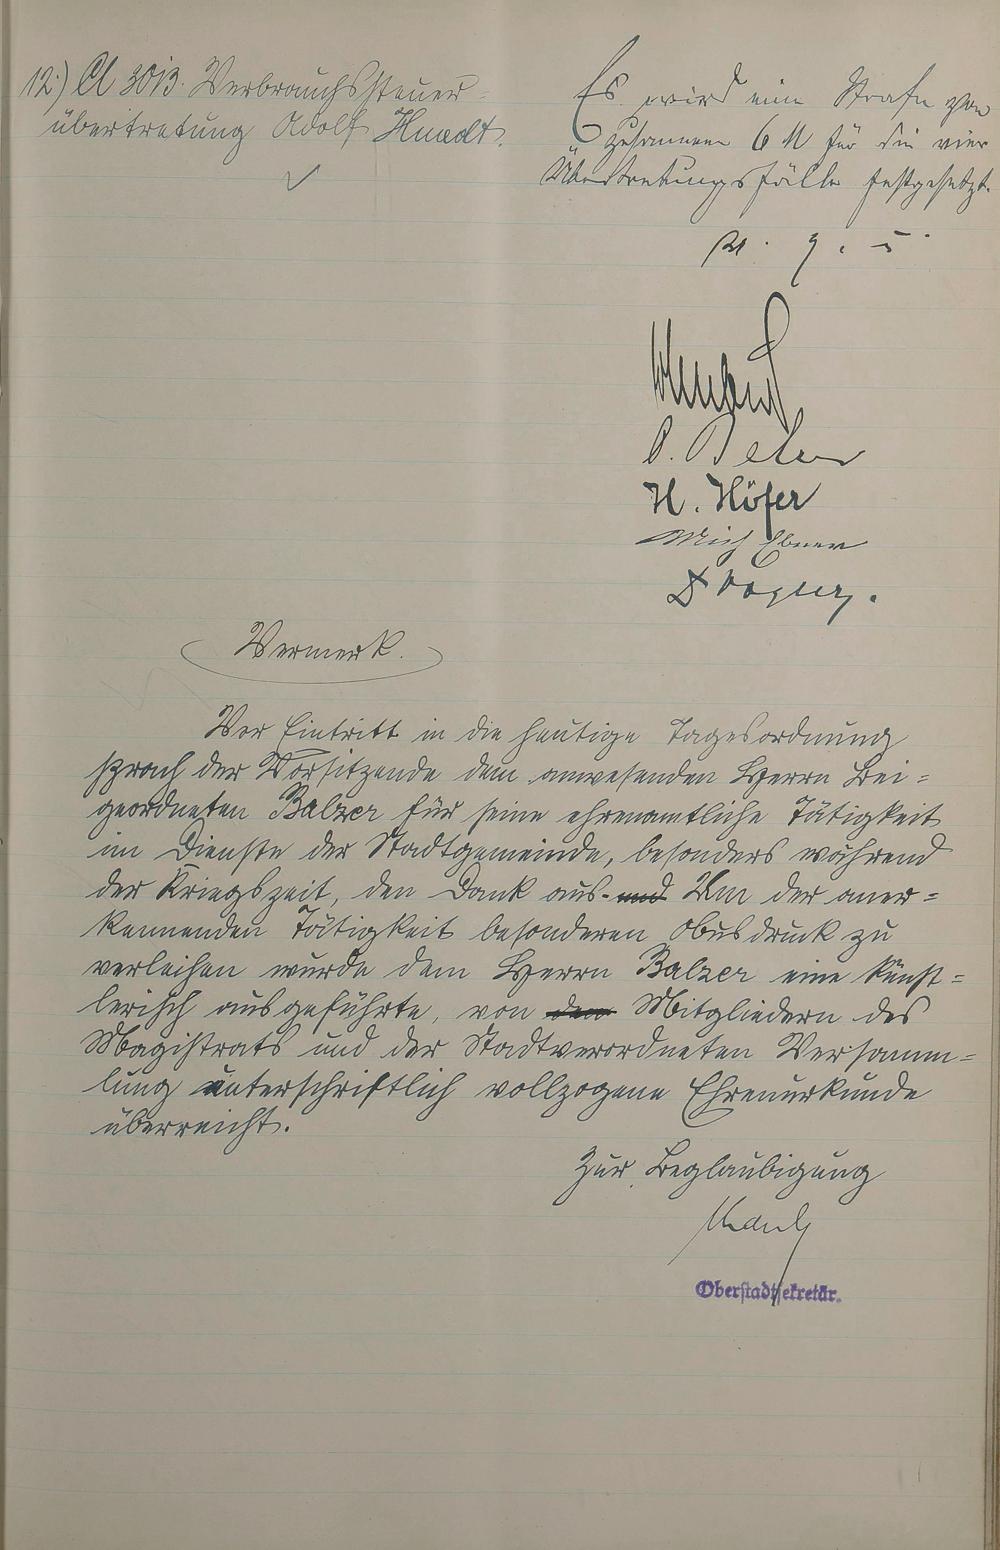 12.) A 3013. Verbrauchssteuer-
übertretung Adolf
Es wird eine Strafe von
zusammen 6 M für die vier
Übertretungsfälle festgesetzt.
H. Höfer
Mich Ebner
Vermerk.
Vor Eintritt in die heutige Tagesordnung
sprach der Vorsitzende dem anwesenden Herrn Bei=
geordneten Balzer für seine ehrenamtliche Tätigkeit
im Dienste der Stadtgemeinde, besonders während
der Kriegszeit, den Dank aus. und Um der aner=
kennenden Tätigkeit besonderen Ausdruck zu
verleihen wurde dem Herrn Balzer eine künst=
lerisch ausgeführte, von den Mitgliedern des
Magistrats und der Stadtverordneten Versamm=
lung unterschriftlich vollzogene Ehrenurkunde
überreicht.
Zur Beglaubigung
Oberstadtsekretär.